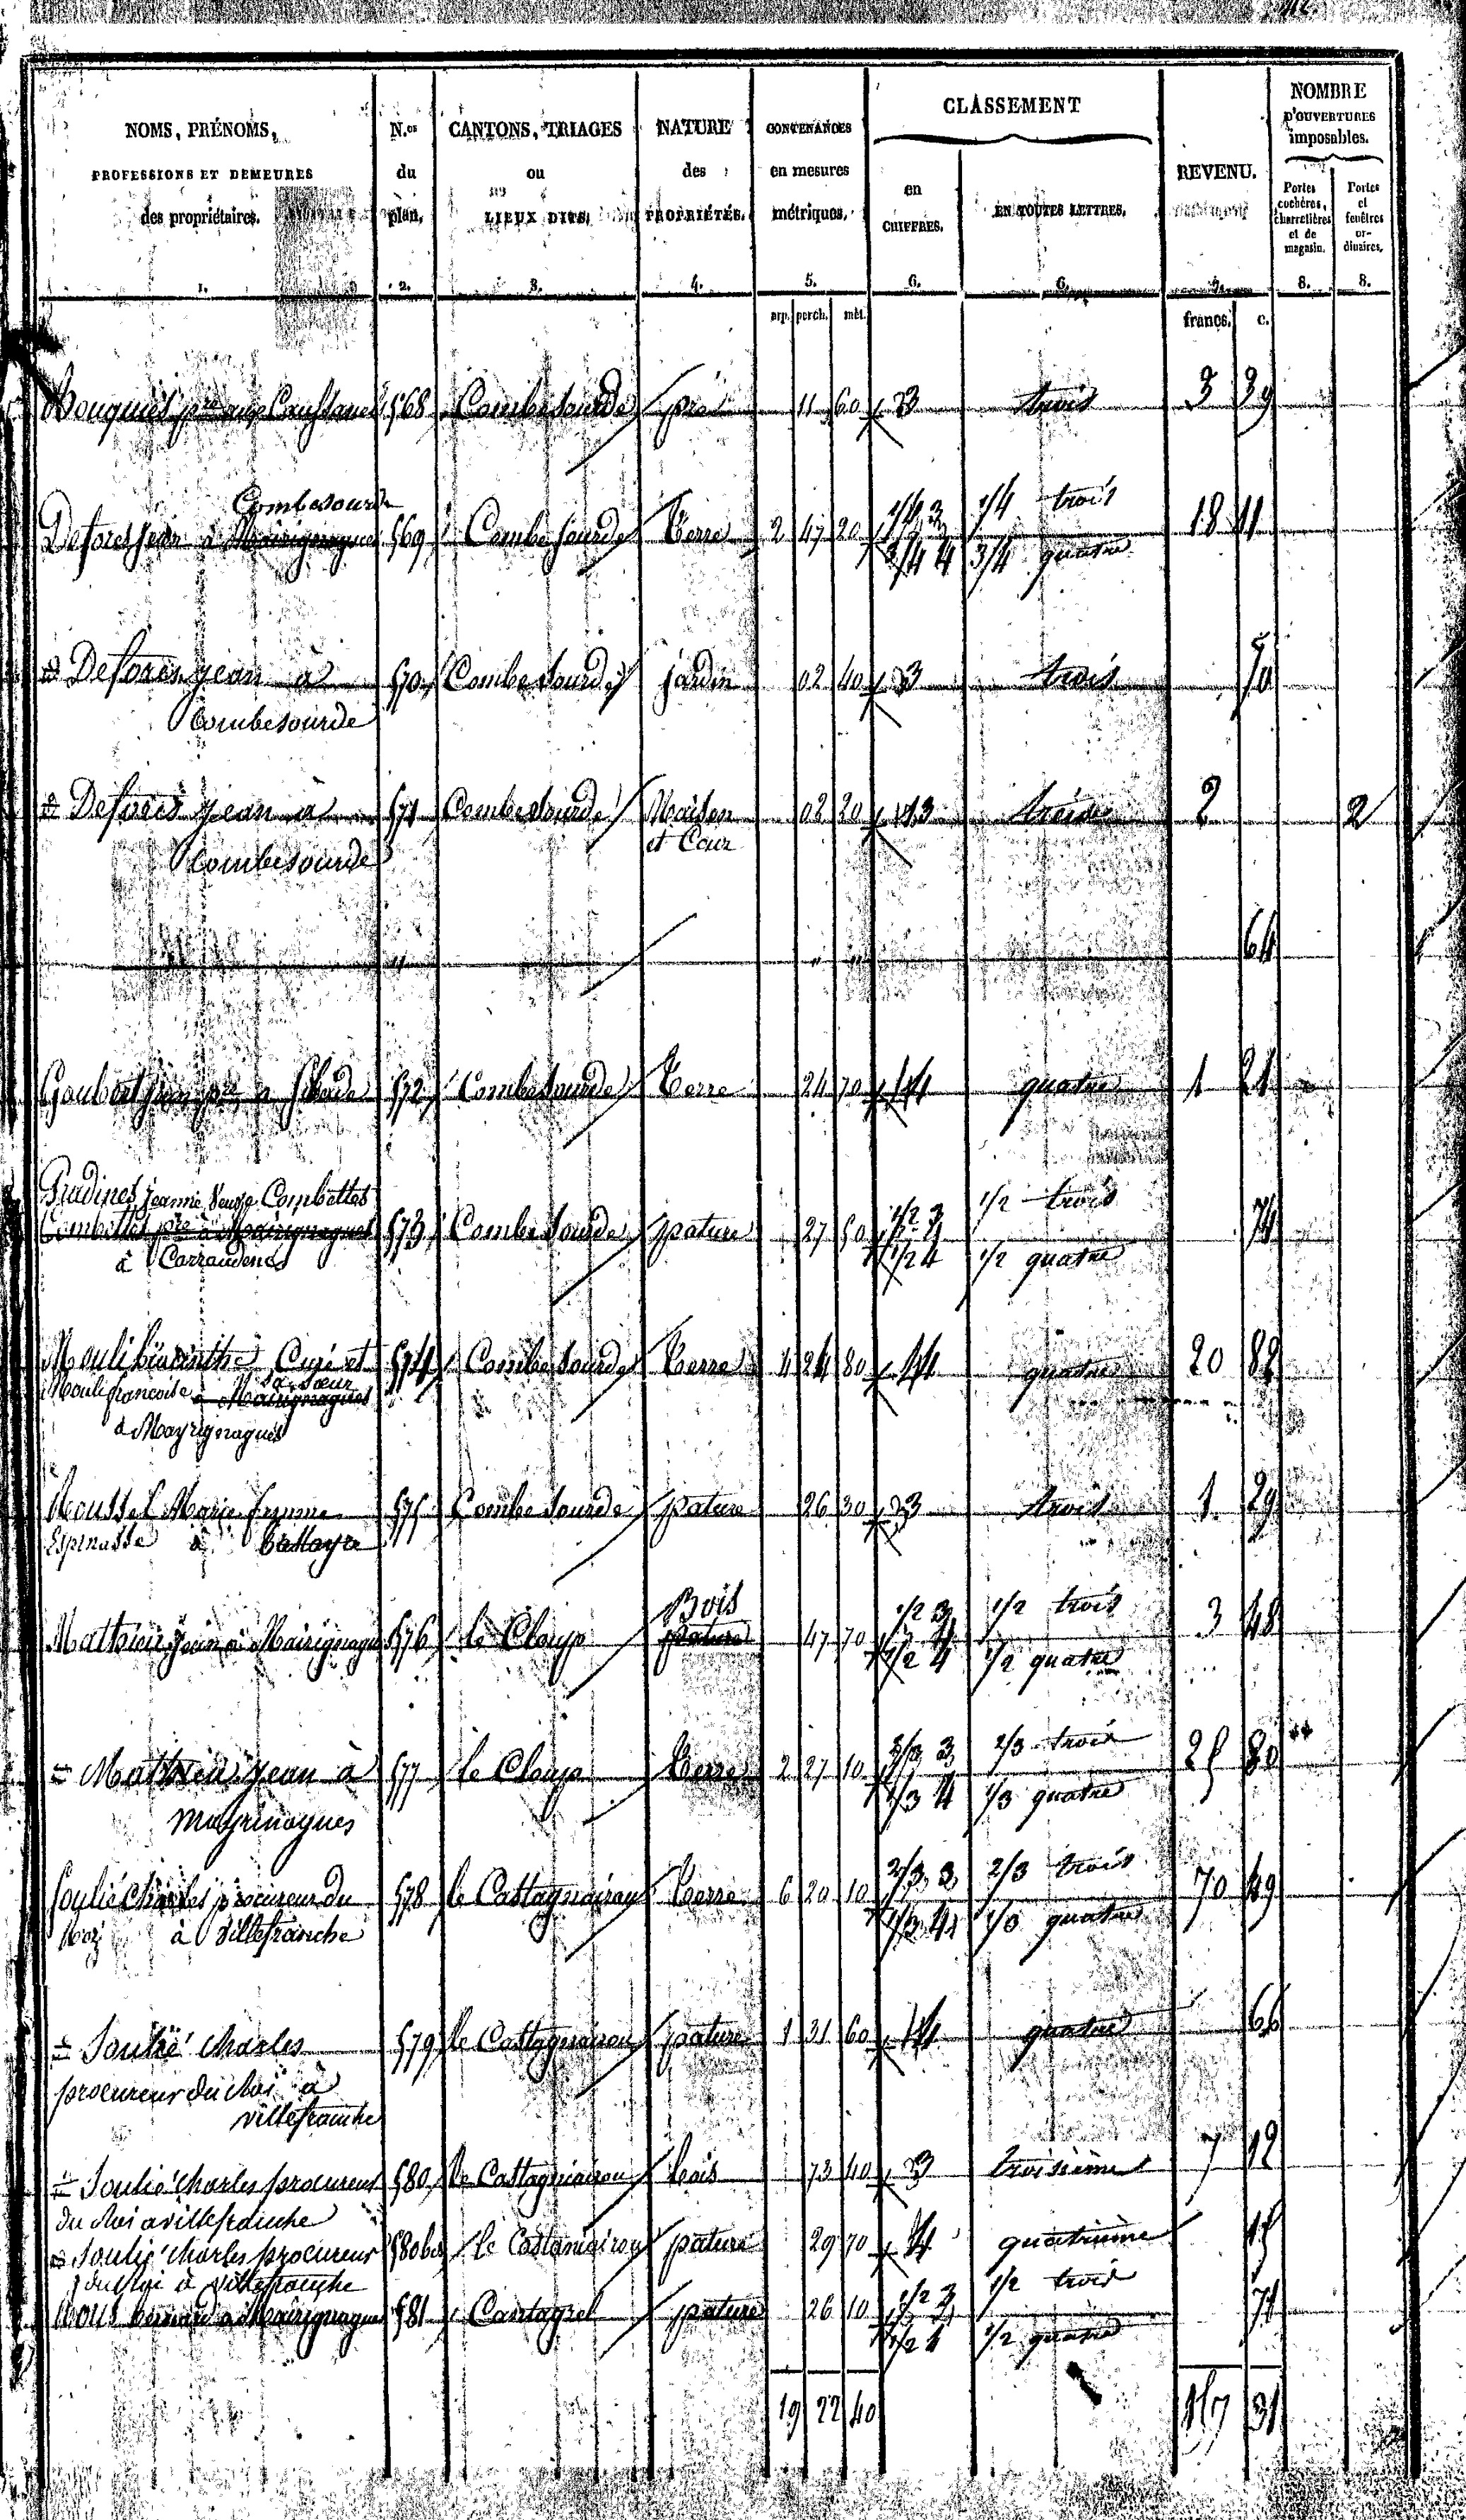 NOMS, PRÉNOMS, PROFESSIONS ET DEMEURES des propriétaires. 1.
N.os du plan. 2.
CANTONS, TRIAGES ou LIEUX DITS. 3.
NATURE des PROPRIÉTÉS. 4.
CONTENANCES en mesures métriques. 5.
CLASSEMENT
en CHIFFRES. 6.
EN TOUTES LETTRES. 6.
REVENU. 7.
NOMBRE D'OUVERTURES imposables.
Portes cochères, charretières et de magasin. 8.
Portes et fenêtres ordinaires. 8.
arp. perch. mèt. francs. c.
568 Combesourde pré 11 60 3 trois 3 39
Combesourde
Defores jean à Mairignagues 569 Combesourde Terre 2 47 20 1/4 3 1/4 trois 18 11
3/4 4 3/4 quatre
Defores jean à 570 Combesourde jardin 02 40 3 trois
Combesourde
Defores jean à 571 Combesourde Maison 02 20 2 2
Combesourde et Cour
64
Goubert 572 Combesourde Terre 24 70 4 quatre 1 21
Pradines jeanne Veuve Combettes 1/2 3 1/2 trois
Combettes pre à Mairignagues 573 Combesourde pature 27 50 74
à Carraudenc 1/2 4 1/2 quatre
Mouli hiacinthe Curé et 574 Combesourde Terre 4 24 80 4 quatre 20 82
Mouli francoise sa soeur à Mairignagues
à Mayrignagues
Roussel Marie femme 575 Combesourde pature 26 30 3 trois 1 29
Espinasse à
Bois 1/2 3 1/2 trois
Mathieu jean à Mairignagues 576 le Cloup pature 47 70 3 48
1/2 4 1/2 quatre
Mathieu jean à 577 le Cloup Terre 2 27 10 2/3 3 2/3 trois 25 80
1/3 4 1/3 quatre
Soulié Charles procureur du 578 le Castagnairou Terre 6 20 10 2/3 3 2/3 trois 70 49
Roi à Villefranche 1/3 4 1/3 quatre
Soulié Charles 579 le Castagnairou pature 1 31 60 4 quatre 66
procureur du Roi à
villefranche
Soulié Charles procureur 580 le Castagnairou bois 73 40 3 troisième 7 12
du Roi a villefranche
Soulié Charles procureur 580 bis le Castagnairou pature 29 70 4 quatrième 15
du Roi à villefranche
1/2 3 1/2 trois
bernard à Mairignagues 581 Cantagrel pature 26 10 71
1/2 4 1/2 quatre
19 22 40 157 31